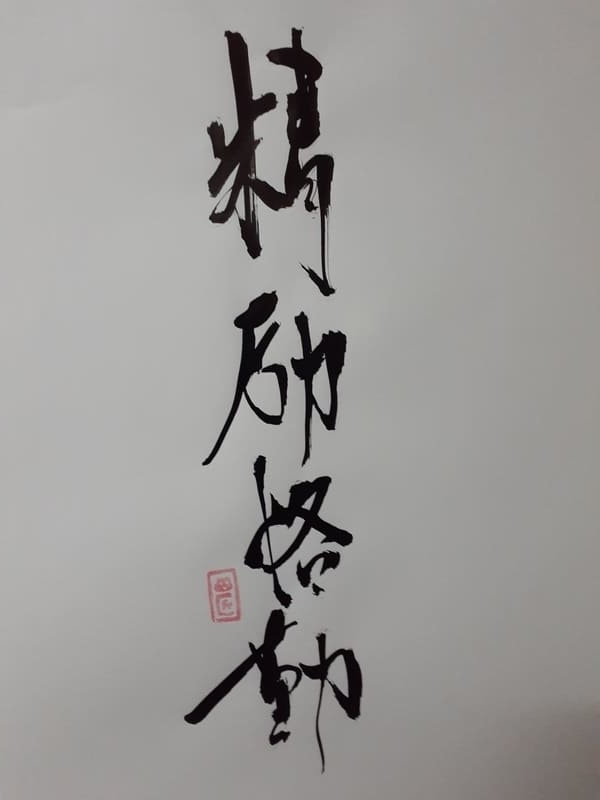 精励恪勤